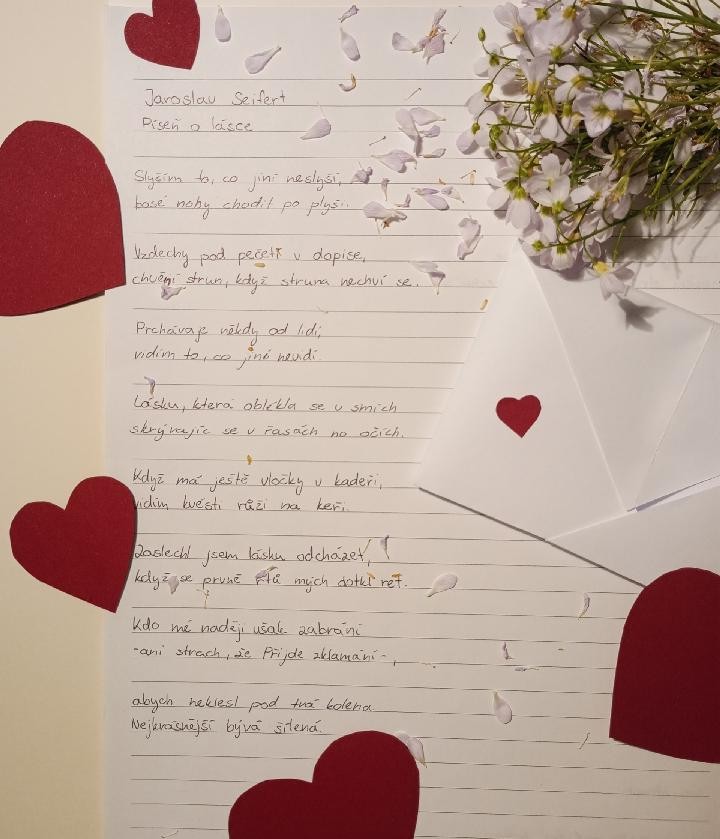 Jaroslav Seifert
Píseň o lásce
Slyším to, co jiní neslyší,
bosé nohy chodit po plyši.
Vzdechy pod pečetí v dopise,
chvění strun, když struna nechví se.
Prchávaje někdy od lidí,
vidím to, co jiní nevidí.
Lásku, která oblékla se v smích
skrývajíc se v řasách na očích.
Když má ještě vločky v kadeři,
vidím kvésti růži na keři.
Zaslechl jsem lásku odcházet,
když se prvně rtů mých dotkl ret.
Kdo mé naději však zabrání
-ani strach, že Přijde zklamání-,
abych neklesl pod tvá kolena.
Nejkrásnější bývá šílená.